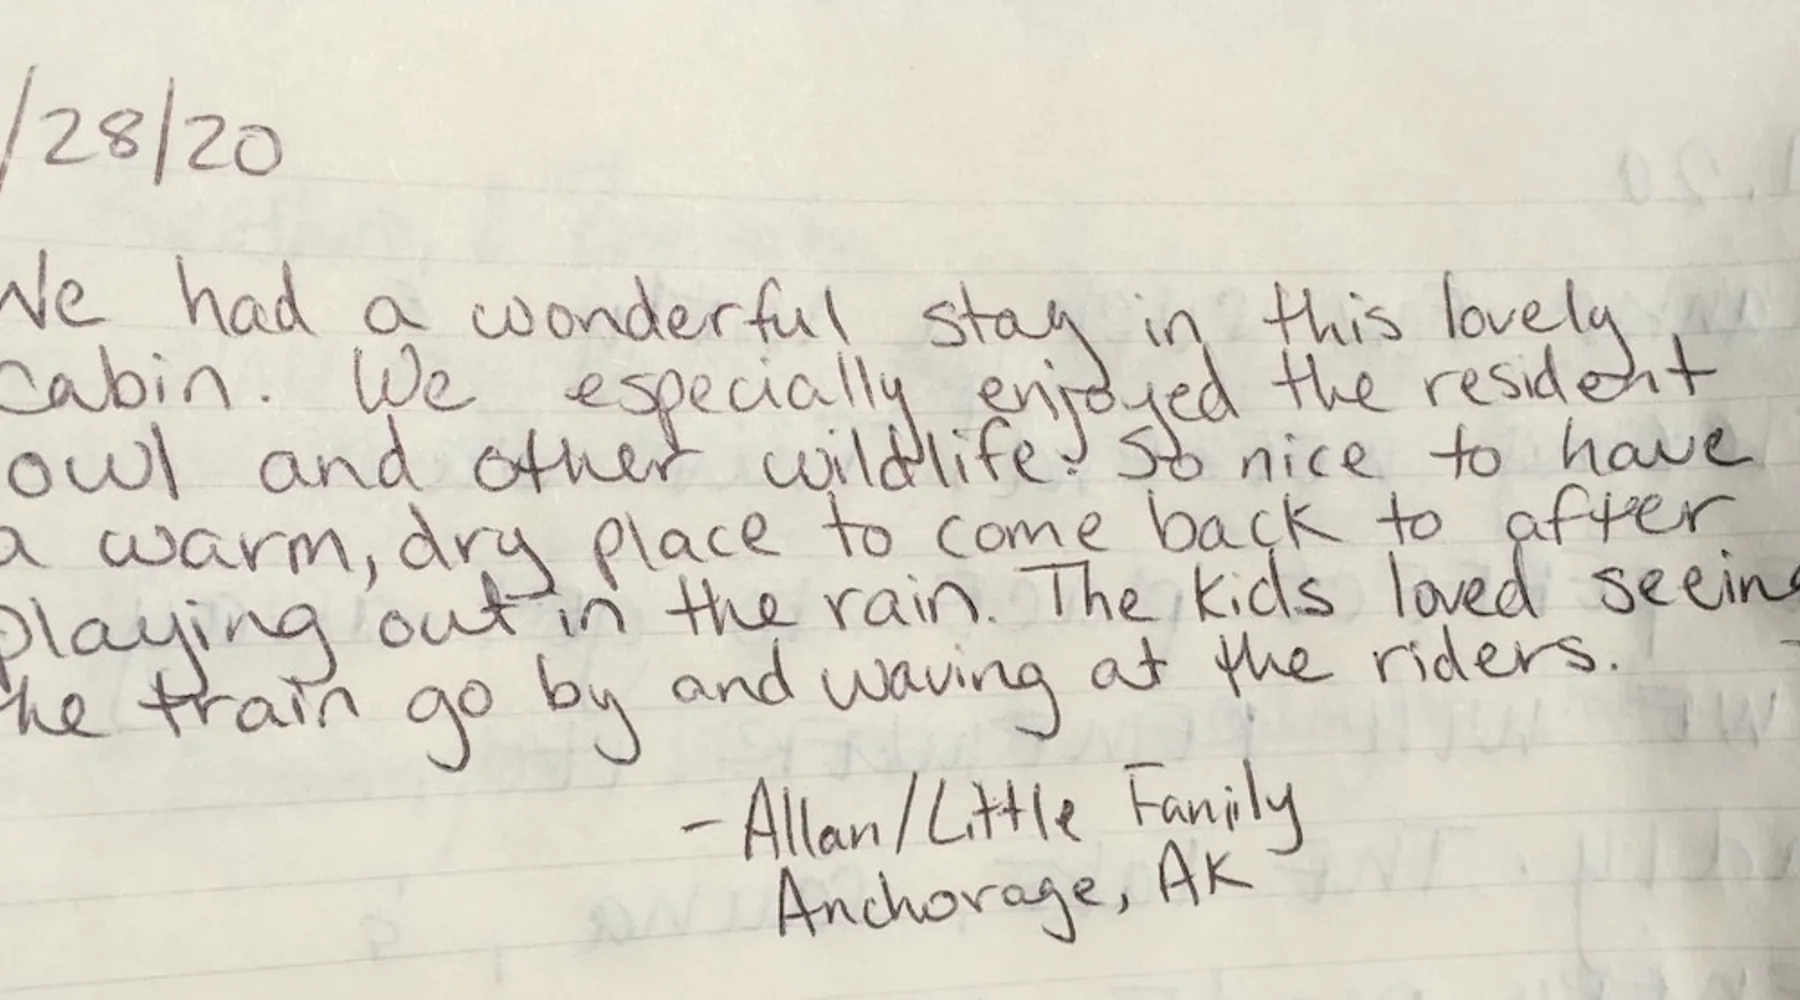 /28/20
We had a wonderful stay in this lovely
cabin. We especially enjoyed the resident
owl and other wildlife. So nice to have
a warm, dry place to come back to after
playing out in the rain. The kids loved seeing
the train go by and waving at the riders.
- Allan/Little Family
Anchorage, AK